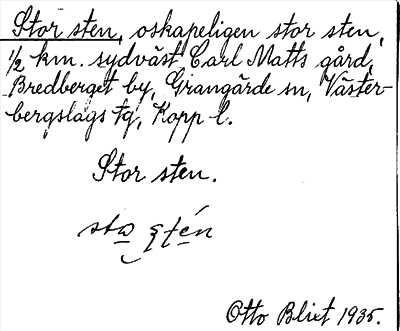 Stor sten, oskapeligen stor sten,
1/2 km. sydväst Carl Matts gård,
Bredberget by, Grangärde sn, Väster-
bergslags tg, Kopp l.
Stor sten.
Otto Blixt 1935.